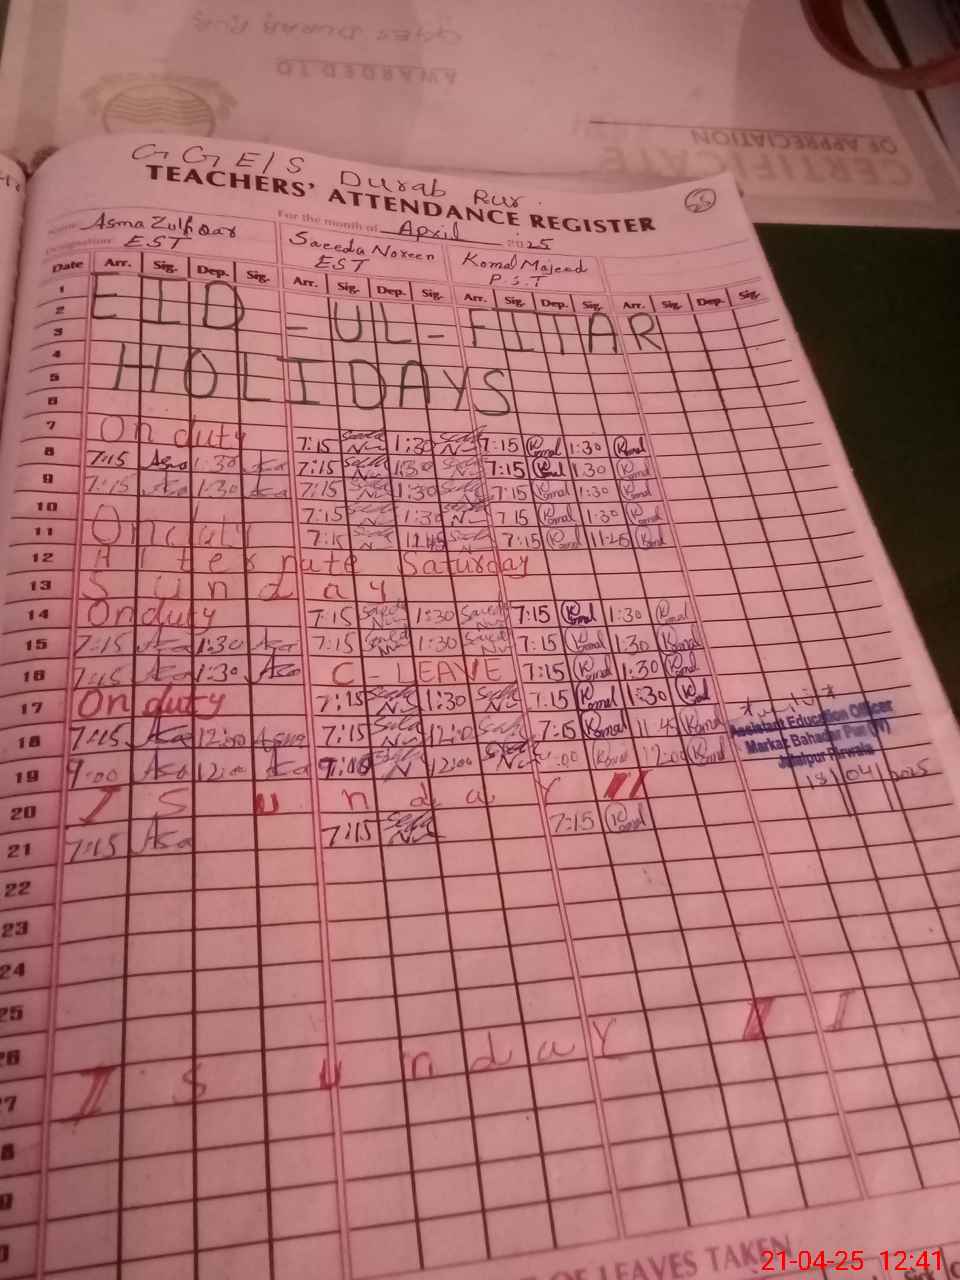 GGES DURAB PUR
AWARDED TO
OF APPRECIATION
CERTIFICATE
GGE/S Durab Pur.
TEACHERS' ATTENDANCE REGISTER
25
Name Asma Zulfiqar For the month of April 2025
Designation EST Saeeda Noreen EST Komal Majeed P.S.T
Date Arr. Sig. Dep. Sig. Arr. Sig. Dep. Sig. Arr. Sig. Dep. Sig. Arr. Sig. Dep. Sig.
1
2 EID-UL-FITAR
3
4
5 HOLIDAYS
6
7 On duty 7:15 1:30 7:15 Komal 1:30 Komal
8 7:15 1:30 7:15 1:30 7:15 Komal 1:30
9 7:15 1:30 7:15 1:30 7:15 Komal 1:30
10 7:15 1:30 7:15 Komal 1:30 Komal
11 On duty 7:15 11:45 7:15 Komal 11:45 Komal
12 Alternate Saturday
13 Sunday
14 On duty 7:15 1:30 7:15 Komal 1:30 Komal
15 7:15 1:30 7:15 1:30 7:15 Komal 1:30 Komal
16 7:15 1:30 C-LEAVE 7:15 Komal 1:30 Komal
17 On duty 7:15 1:30 7:15 Komal 1:30
18 7:15 12:00 7:15 12:00 7:15 Komal 11:45 Komal
19 9:00 12:00 12:00 9:00 Komal 12:00 Komal
20 Sunday
21 7:15 7:15 7:15 Komal
22
23
24
25
26
27 Sunday
Assistant Education Officer
Markaz Bahadar Pur (W)
Jalalpur Pirwala
18/04/2025
OF LEAVES TAKEN
21-04-25 12:41